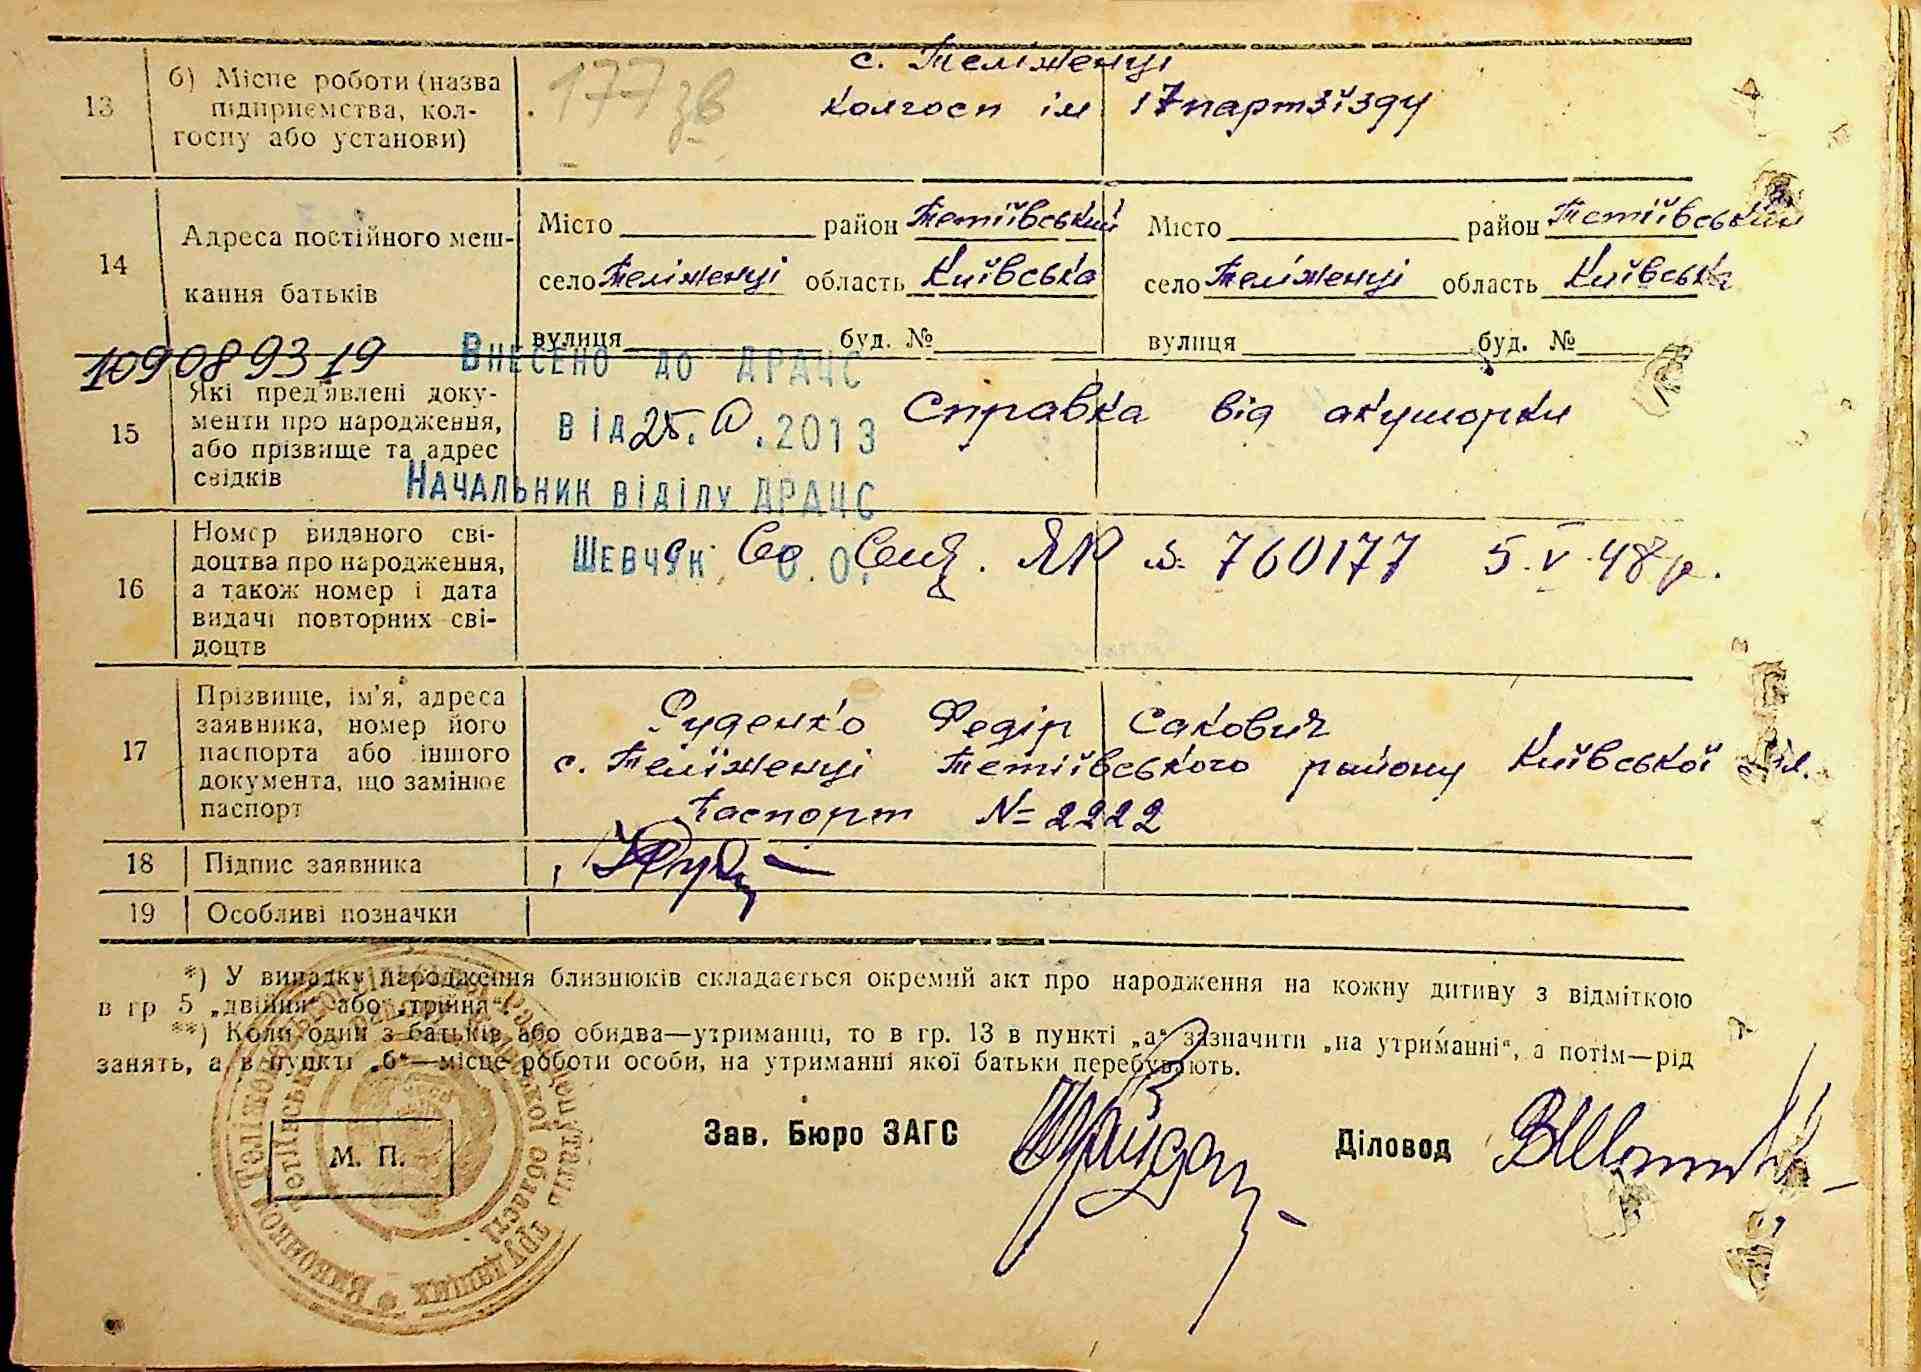 с. Теліженці
13 б) Місце роботи (назва підприємства, колгоспу або установи) 177 зв колгосп ім 17 партзїзду
14 Адреса постійного мешкання батьків
Місто район Тетіївський Місто район Тетіївський
село Теліженці область Київська село Теліженці область Київська
вулиця буд. № вулиця буд. №
109089319 Внесено до ДРАЦС
15 Які пред'явлені документи про народження, або прізвище та адрес свідків
від 25. .2013 Справка від акушорки
Начальник відділу ДРАЦС
16 Номер виданого свідоцтва про народження, а також номер і дата видачі повторних свідоцтв
Шевчук О.О. ЯР № 760177 5.V.48 р.
17 Прізвище, ім'я, адреса заявника, номер його паспорта або іншого документа, що замінює паспорт
Руденко Федір Сакович
с. Теліженці Тетіївського району Київської обл.
Паспорт № 2222
18 Підпис заявника
19 Особливі позначки
*) У випадку народження близнюків складається окремий акт про народження на кожну дитину з відміткою
в гр 5 „двійня" або „трійня"
**) Коли один з батьків або обидва—утриманці, то в гр. 13 в пункті „а" зазначити „на утриманні", а потім—рід
занять, а в пункті „б"—місце роботи особи, на утриманні якої батьки перебувають.
М. П.
Зав. Бюро ЗАГС Діловод